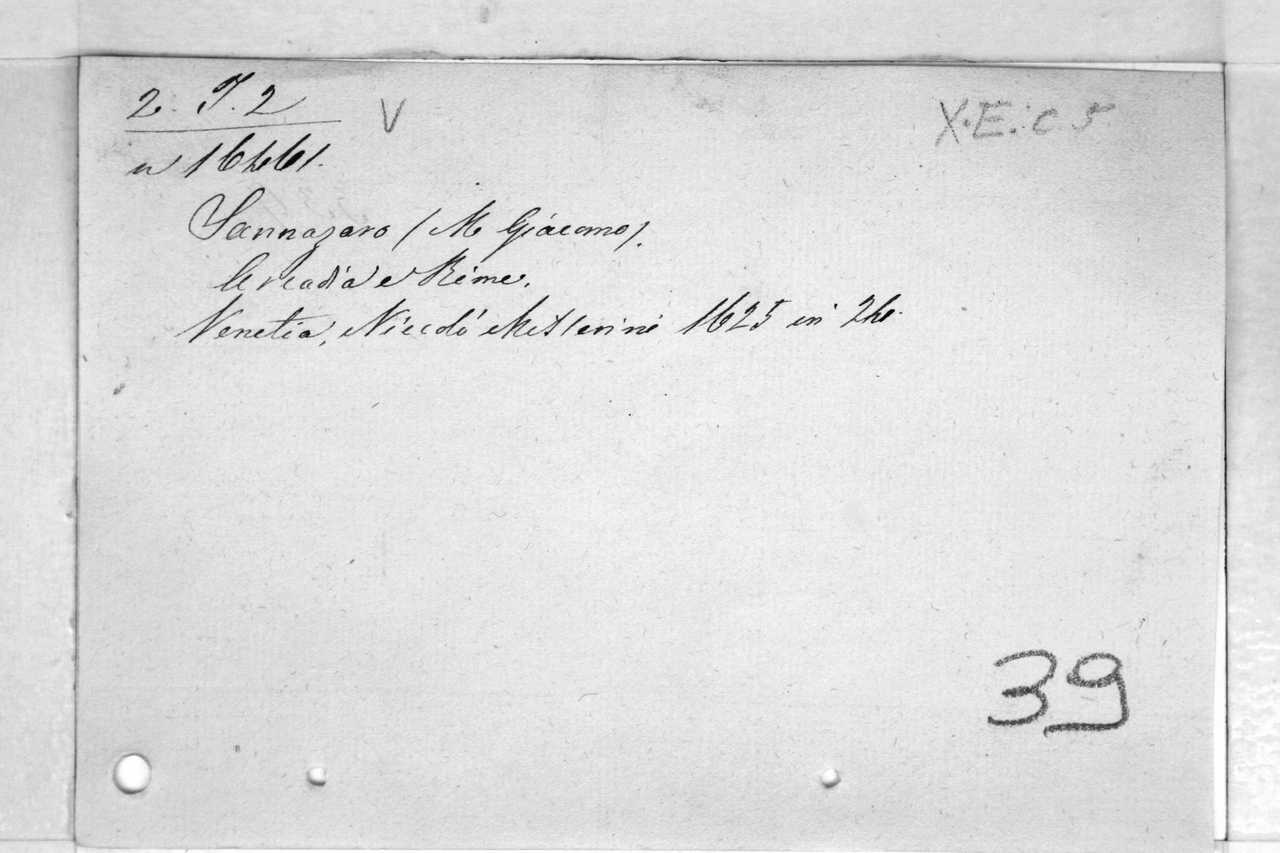 2. T. 2
V
X.E.: C 5
n 16461.
Sannazaro (M Giacomo).
Arcadia e Rime.
Venetia, Niccolò Misserini 1625 in 24.
39